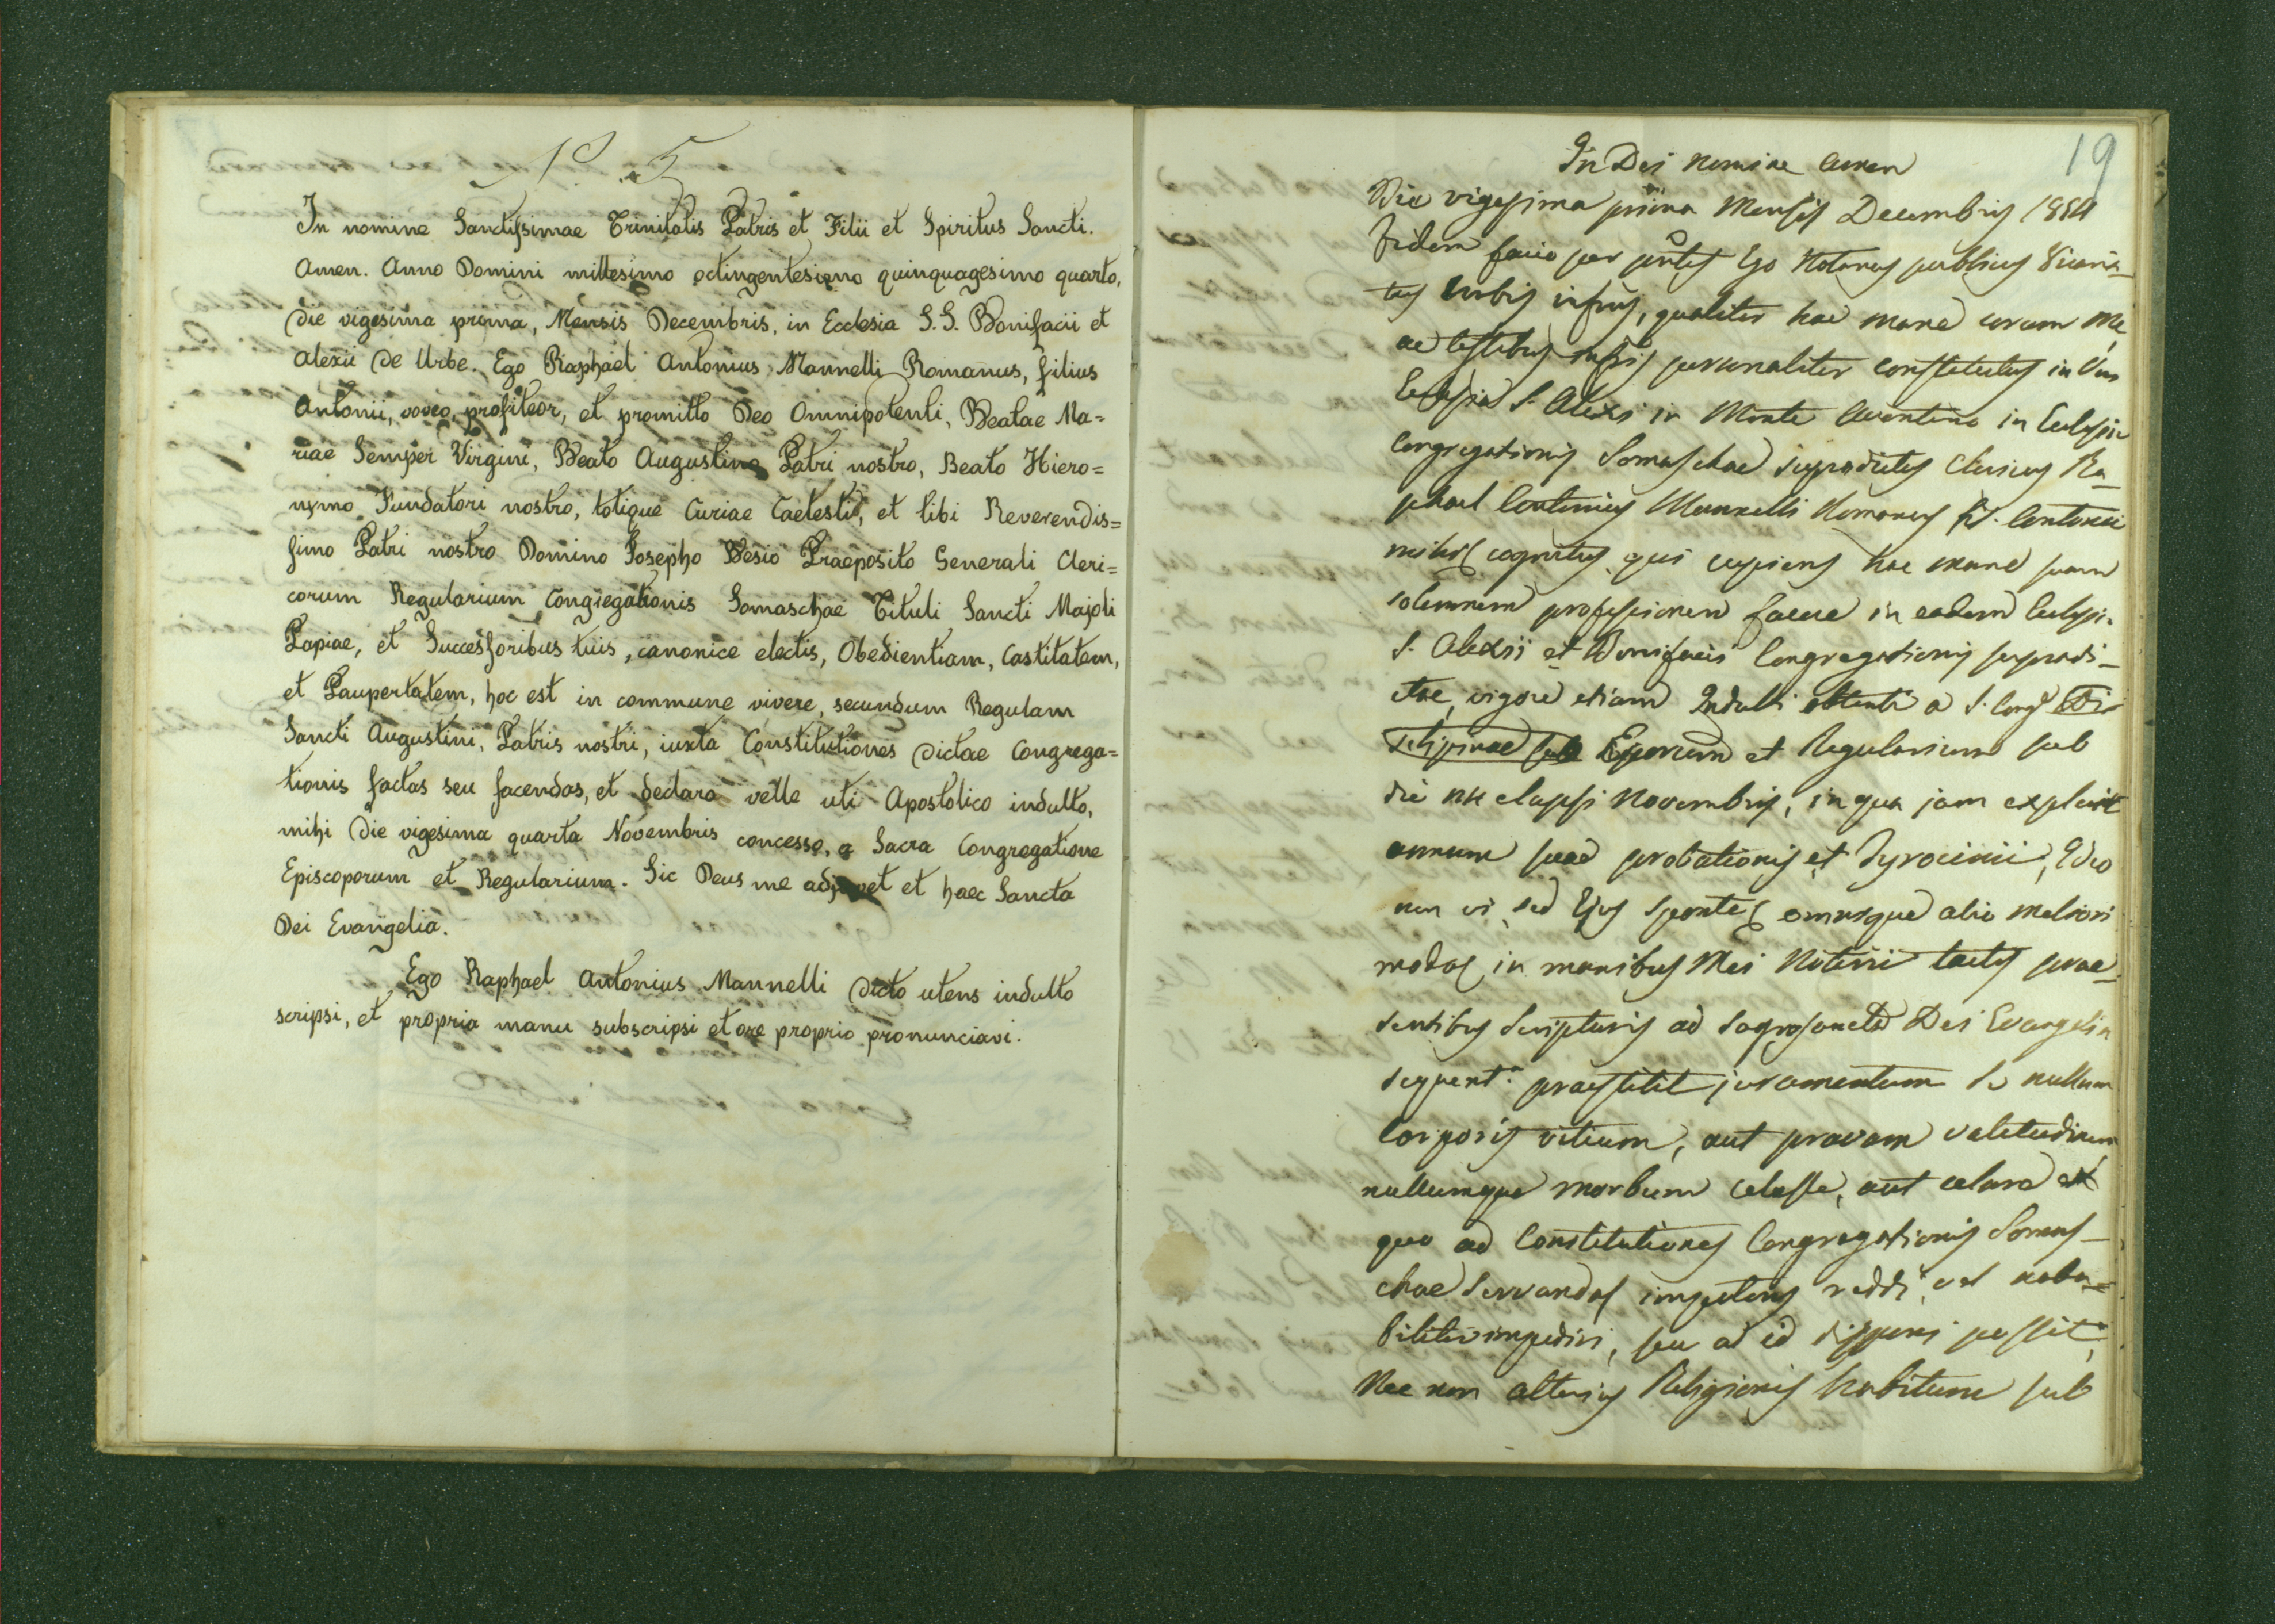 N. 5
In nomine Sanctissimae Trinitatis Patris et Filii et Spiritus Sancti.
Amen. Anno Domini millesimo octingentesimo quinquagesimo quarto,
die vigesima prima, Mensis Decembris, in Ecclesia S.S. Bonifacii et
Alexii de Urbe. Ego Raphael Antonius Mannelli Romanus, filius
Antonii, voveo, profiteor, et promitto Deo Omnipotenti, Beatae Ma=
riae Semper Virgini, Beato Augustino Patri nostro, Beato Hiero=
nymo Fundatori nostro, totique Curiae Caelesti, et tibi Reverendis=
simo Patri nostro Domino Josepho Besio Praeposito Generali Cleri=
corum Regularium Congregationis Somaschae Tituli Sancti Majoli
Papiae, et Successoribus tuis, canonice electis, Obedientiam, Castitatem,
et Paupertatem, hoc est in commune vivere, secundum Regulam
Sancti Augustini, Patris nostri, iuxta Constitutiones dictae Congrega=
tionis factas seu facendas, et declaro velle uti Apostolico indulto,
mihi die vigesima quarta Novembris concesso, a Sacra Congregatione
Episcoporum et Regularium. Sic Deus me adjuvet et haec Sancta
Dei Evangelia.
Ego Raphael Antonius Mannelli dicto utens indulto
scripsi, et propria manu subscripsi et ore proprio pronunciavi.
19
In Dei Nomine Amen
Die vigesima prima Mensis Decembris 1854
Fidem facio per pntes Ego Notarius publicus Vicaria_
tus Urbis infrus, qualiter hac mane coram me,
ac testibus infris personaliter constitutus in Ven
Ecclesia S. Alexi in Monte Aventino in Ecclesia
Congregationis Somaschae supradictus Clericus Ra_
phael Antonius Mannelli Romanus fil. Antonii
mihi cognitus, qui cupiens hac mane suam
solemnem professionem facere in eadem Ecclesia
S. Alexii et Bonifacii Congregationis supradi_
ctae, vigore etiam Indulti obtenti a S. Cong Di
sciplinae sub Eporum et Regularium sub
die elapsi Novembris, in qua jam explevit
annum suae probationis et Tyrocinii, Ideo
non vi sed Ejus sponte omnique alio meliori
modo in manibus Mei Notarii tactis prae_
sentibus Scripturis ad Sagrosancta Dei Evangelia
praestitit juramentum Se nullum
Corporis vitium, aut pravam valetudinem
nullumque morbum celasse, aut celare ex
quo ad Constitutiones Congregationis Somas_
chae Servandas impotens reddi, vel nota=
biliter impediri, seu ad id possit,
Nec non alterius Religionis habitum sub